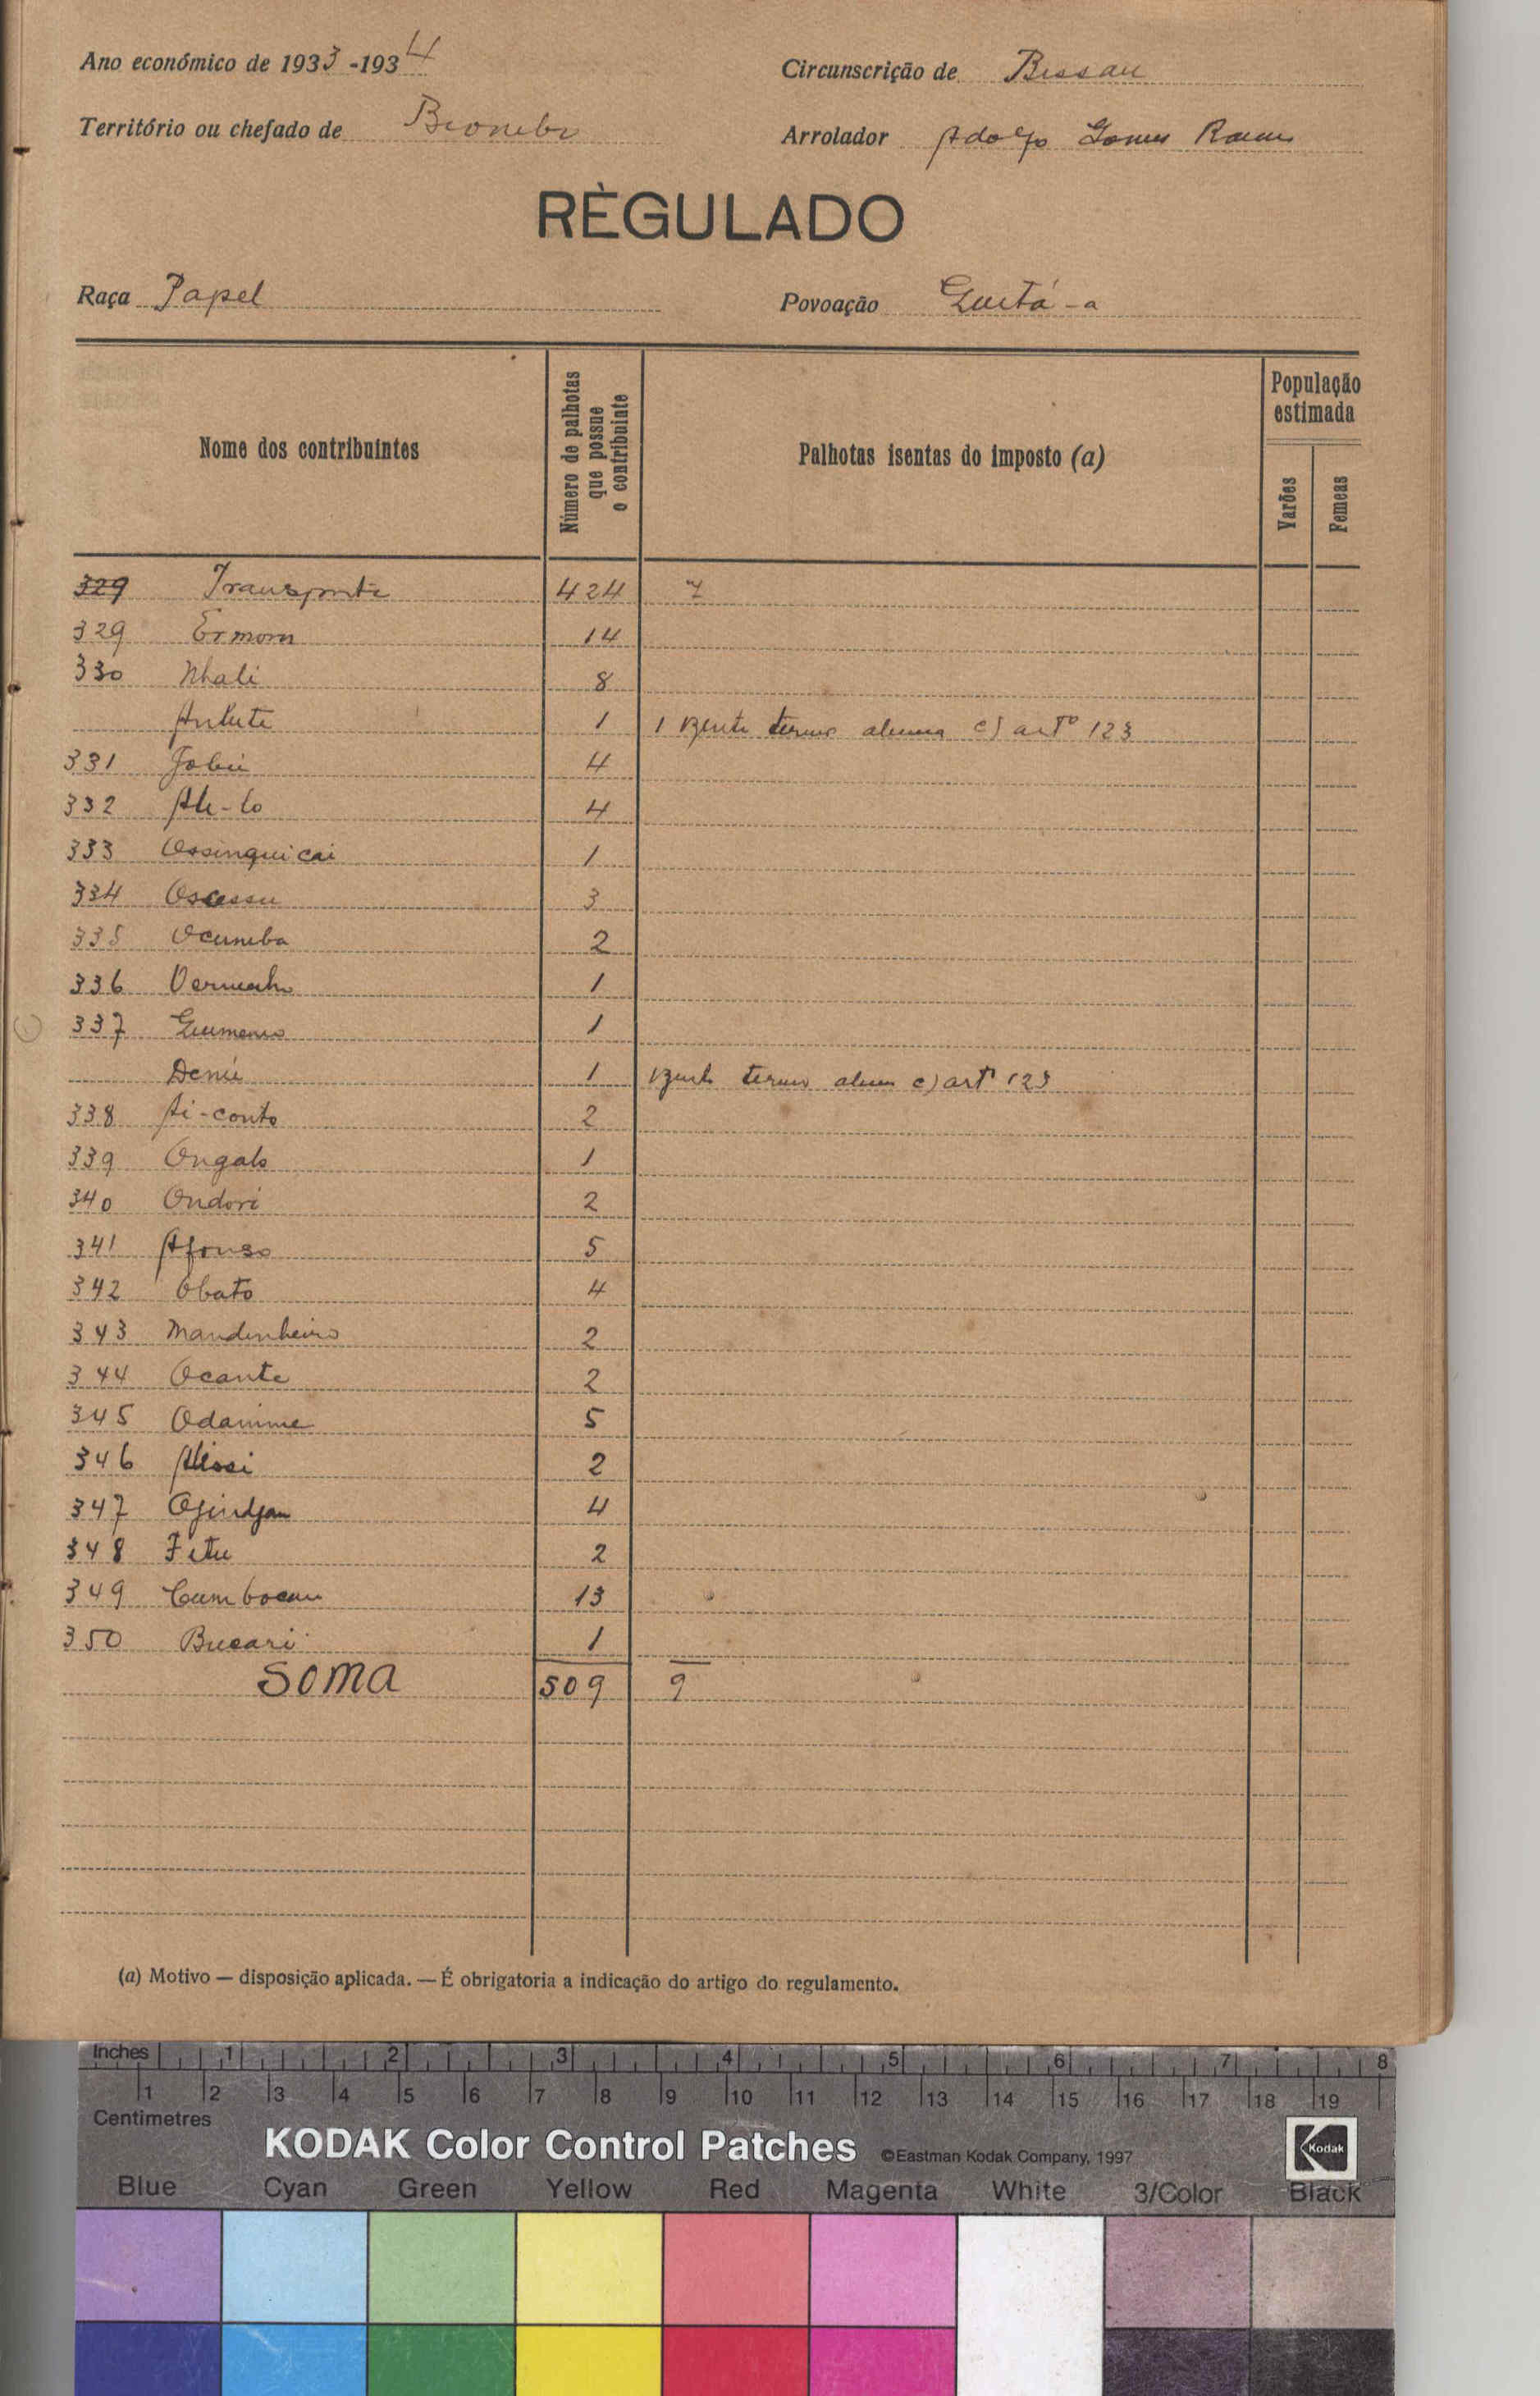 Ano económico de 1933-1934
Circunscrição de Bissau
Território ou chefado de Biombo
Arrolador Adolfo Gomes Ramos
RÈGULADO
Raça Papel
Povoação Quitá-a
Nome dos contribuintes
Número de palhotas que possue o contribuinte
Palhotas isentas do imposto (a)
População estimada
Varões
Femeas
329 Transporte 424 7
329 Ermom 14
330 Nhali 8
Antute 1 1 izente termo alinea c) artº 123
331 Jobú 4
332 Ale-lo 4
333 Ossinquicai 1
334 Ocassu 3
335 Ocumba 2
336 1
337 1
Deniú 1 izente termo alinea c) artº 123
338 Ai-conto 2
339 Ongalo 1
340 Ondori 2
341 Afonso 5
342 Obato 4
343 Mandinheiro 2
344 Ocante 2
345 Odamme 5
346 Alissi 2
347 Ofindjam 4
348 Fitu 2
349 13
350 Bucari 1
SOMA 509 9
(a) Motivo — disposição aplicada. — É obrigatoria a indicação do artigo do regulamento.
Inches 1 2 3 4 5 6 7 8
1 2 3 4 5 6 7 8 9 10 11 12 13 14 15 16 17 18 19
Centimetres
KODAK Color Control Patches ©Eastman Kodak Company, 1997 Kodak
Blue Cyan Green Yellow Red Magenta White 3/Color Black